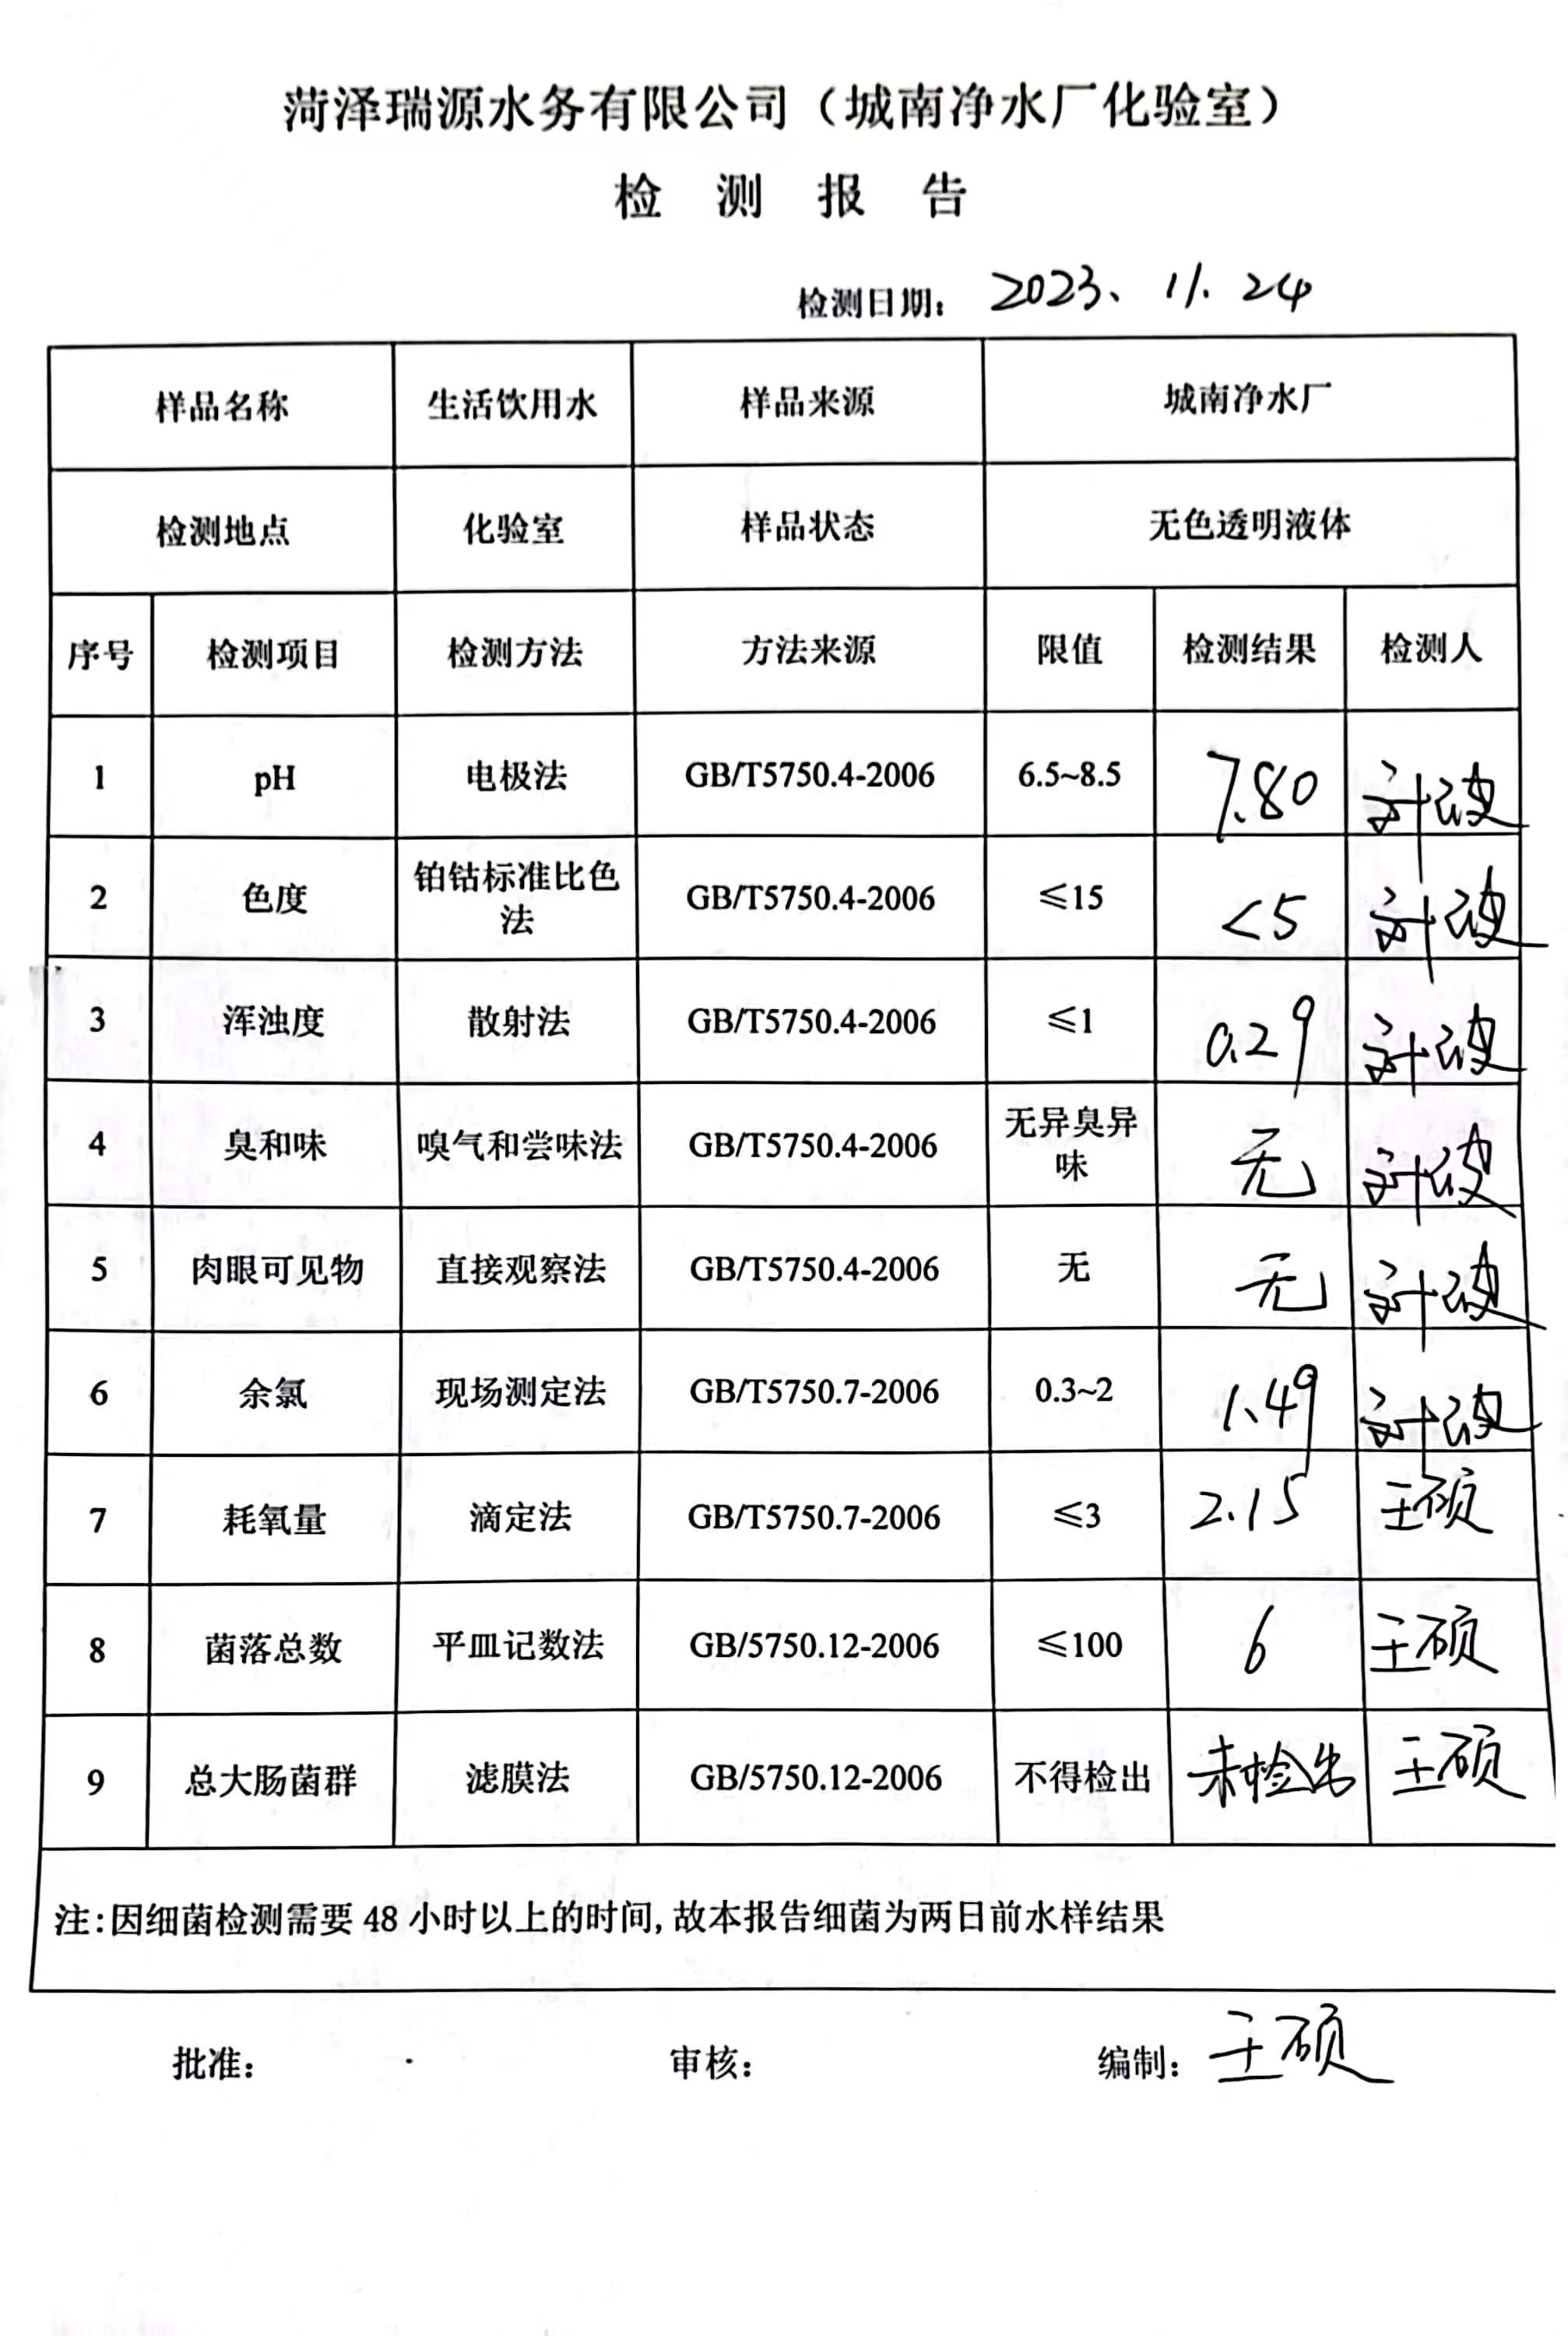 菏泽瑞源水务有限公司（城南净水厂化验室）
检 测 报 告
检测日期： 2023、11. 24
样品名称 生活饮用水 样品来源 城南净水厂
检测地点 化验室 样品状态 无色透明液体
序号 检测项目 检测方法 方法来源 限值 检测结果 检测人
1 pH 电极法 GB/T5750.4-2006 6.5~8.5 7.80
2 色度 铂钴标准比色法 GB/T5750.4-2006 ≤15 <5
3 浑浊度 散射法 GB/T5750.4-2006 ≤1 0.29
4 臭和味 嗅气和尝味法 GB/T5750.4-2006 无异臭异味 无
5 肉眼可见物 直接观察法 GB/T5750.4-2006 无 无
6 余氯 现场测定法 GB/T5750.7-2006 0.3~2 1.49
7 耗氧量 滴定法 GB/T5750.7-2006 ≤3 2.15 王硕
8 菌落总数 平皿记数法 GB/5750.12-2006 ≤100 6 王硕
9 总大肠菌群 滤膜法 GB/5750.12-2006 不得检出 未检出 王硕
注：因细菌检测需要 48 小时以上的时间，故本报告细菌为两日前水样结果
批准： 审核： 编制： 王硕